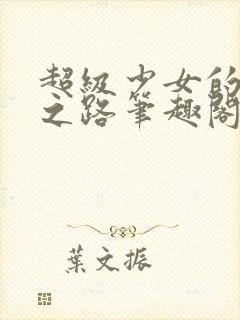 超級少女的
之路筆趣閣
葉文振